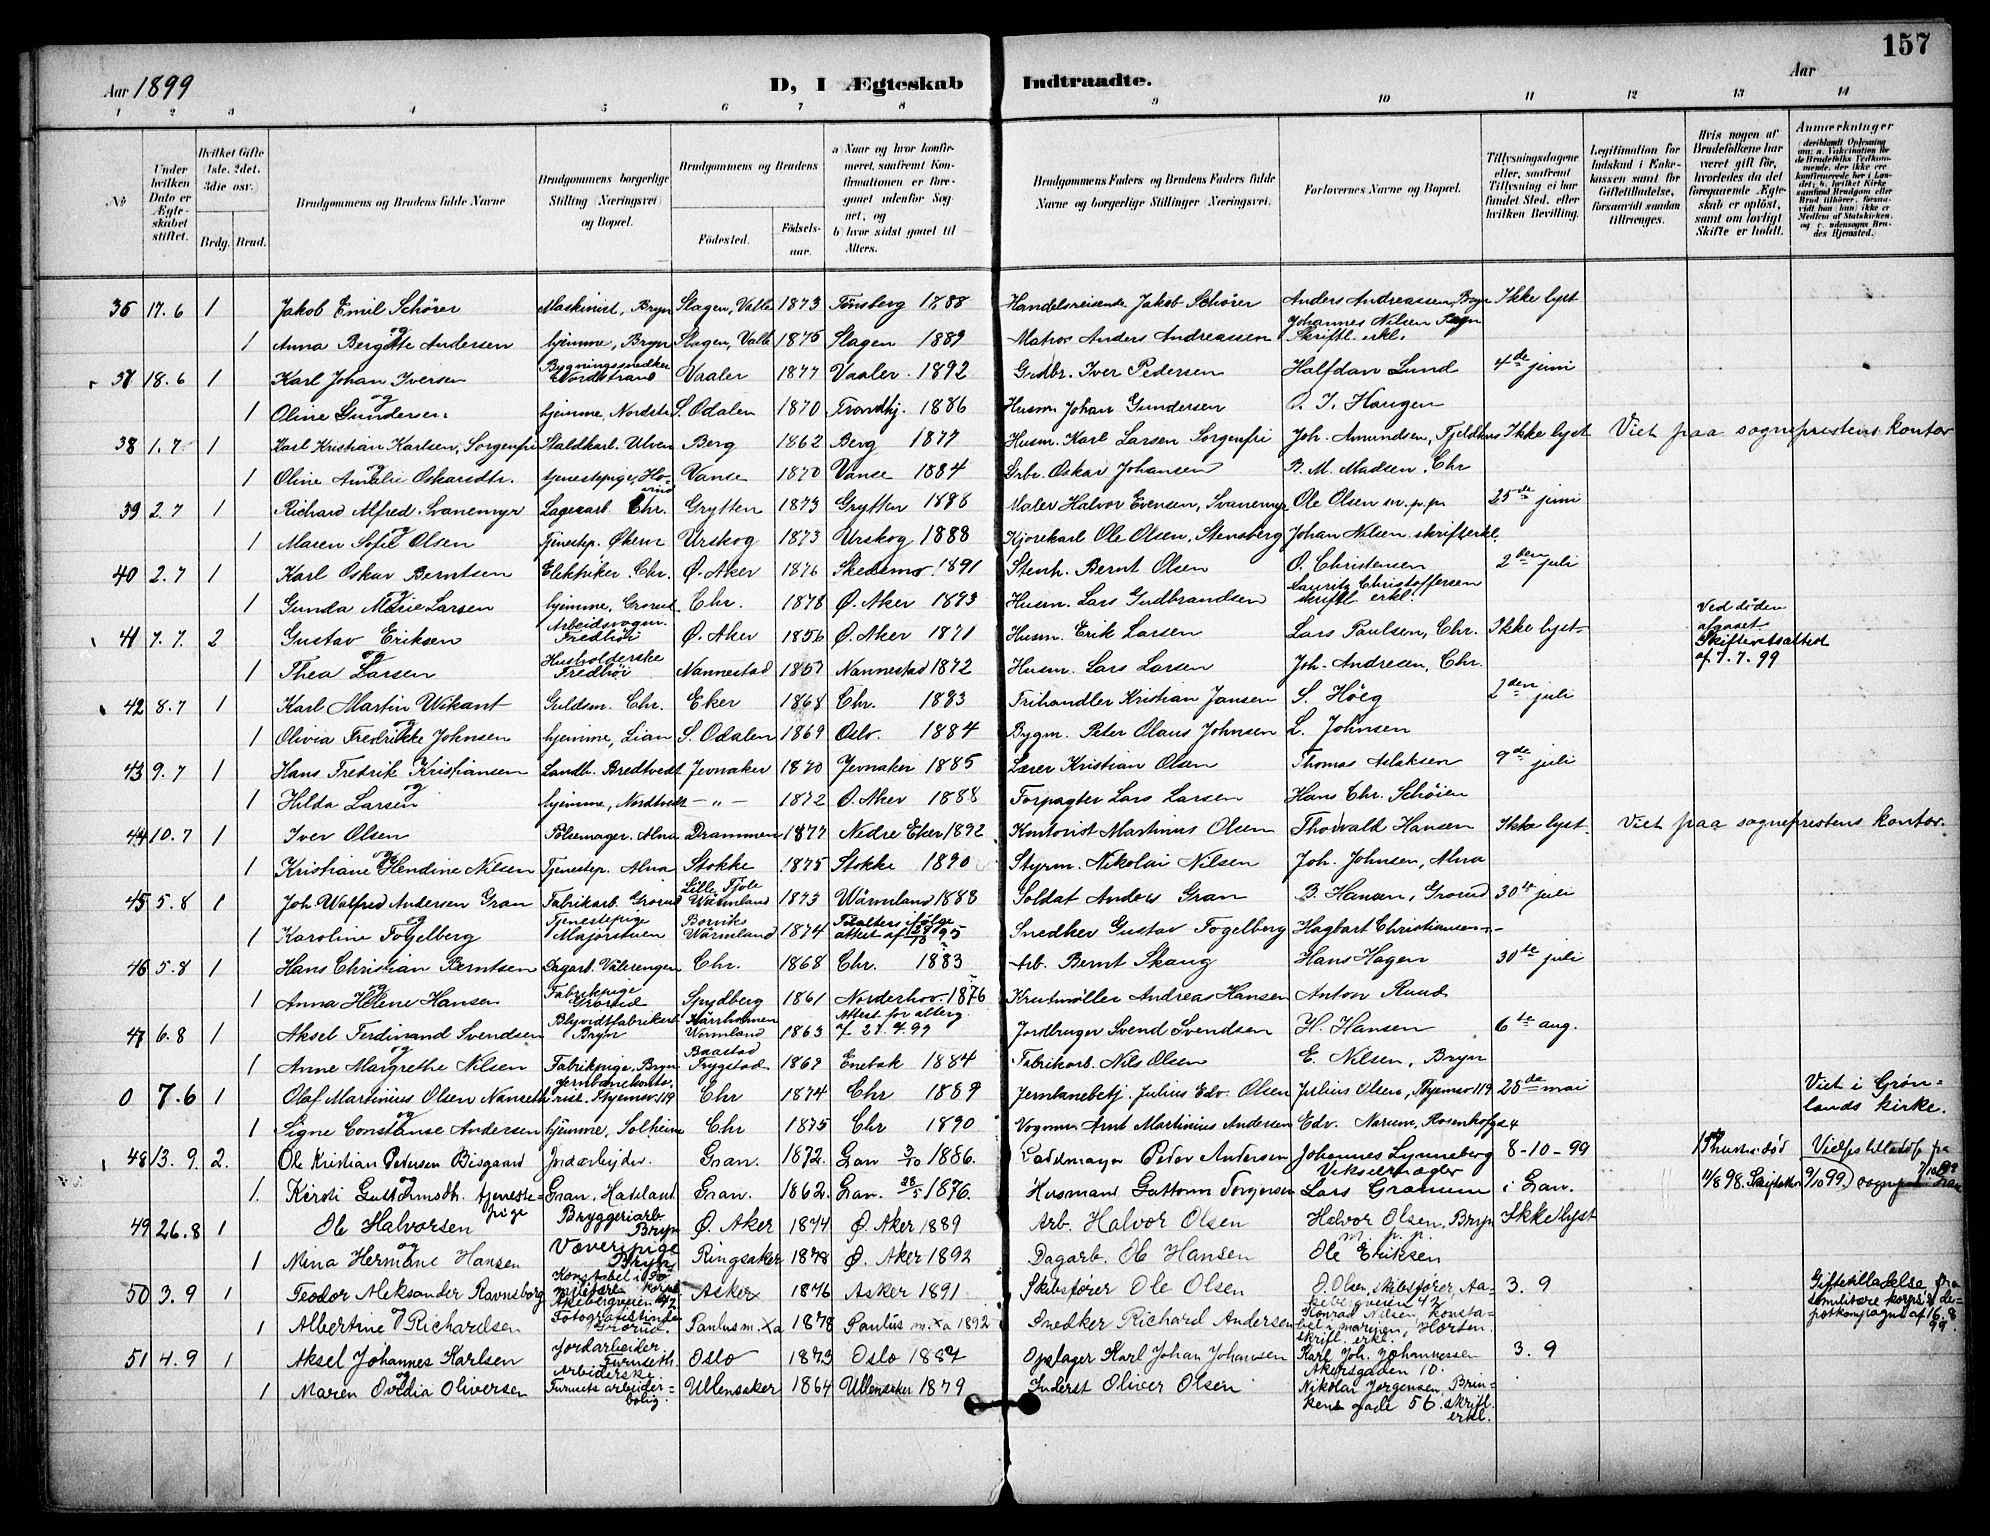 157
Aar 1899
D, I Ægteskab Indtraadte.
Aar
1 2 3 4 5 6 7 8 9 10 11 12 13 14
No
Under hvilken Dato er Ægteskabet stiftet.
Hvilket Gifte 1ste, 2det, 3die osv.
Brdg. Brud.
Brudgommens og Brudens fulde Navne
Brudgommens borgerlige Stilling (Næringsvei) og Bopæl.
Brudgommens og Brudens
Fødested. Fødselsaar.
a Naar og hvor konfirmeret, saafremt Konfirmationen er foregaaet udenfor Sognet, og b) hvor sidst gaaet til Alters.
Brudgommens Faders og Brudens Faders fulde Navne og borgerlige Stillinger (Næringsvei).
Forlovernes Navne og Bopæl.
Tillysningsdagene eller, saafremt Tillysning ei har fundet Sted, efter hvilken Bevilling.
Legitimation for Indskud i Enkekassen samt for Giftetilladelse, forsaavidt saadan tiltrænges.
Hvis nogen af Brudefolkene har været gift før, hvorledes da det foregaaende Ægteskab er opløst, samt om lovligt Skifte er holdt.
Anmærkninger (deriblandt Oplysning om: a. Vaccination for de Brudefolks Vedkommende, der ikke ere konfirmerede her i Landet; b. hvilket Kirkesamfund Brudgom eller Brud tilhører, forsaavidt han (hun) ikke er Medlem af Statskirken, og c. udensogns Brudes Hjemsted.)
36 17.6 1 Jakob Emil Schörer Maskinist, Bryn Slagen, Valle 1873 Tønsberg 1888 Handelsreisende Jakob Schörer Anders Andreassen, Bryn Ikke lyst
og Johannes Nilsen Bryn
1 Anna Bergitte Andersen hjemme, Bryn Slagen, Valle 1875 Slagen 1889 Matros Anders Andreassen Skriftl. erkl.
37 18.6 1 Karl Johan Iversen Bygningssnedker Nordstrand Vaaler 1877 Vaaler 1892 Gudbr. Iver Pedersen Halfdan Lund 4de juni
og
1 Oline Gundersen hjemme, Nordstr. S. Odalen 1870 Trondhj. 1886 Husm. Johan Gundersen O. J. Haugen
38 1.7 1 Karl Kristian Karlsen, Sorgenfri Staldkarl. Ulven Berg 1862 Berg 1877 Husm. Karl Larsen Sorgenfri Joh. Amundsen, Fjeldhus Ikke lyst Viet paa sogneprestens kontor
og
1 Oline Amalie Oskarsdtr. tjenestepige, Hovind Vanse 1870 Vanse 1884 Grbr. Oskar Johansen B. M. Madsen, Chr
39 2.7 1 Richard Alfred Svanemyr Lagerarb. Chr. Grytten 1873 Grytten 1888 Maler Halvor Evensen, Svanemyr Ole Olsen m.p.p. 25de juni
og
1 Maren Sofie Olsen Tjenestep. Økern Urskog 1873 Urskog 1888 Kjørekarl Ole Olsen, Stensberg Johan Nilsen skrifterkl.
40 2.7 1 Karl Oskar Berntsen Elektriker Chr. Ø. Aker 1876 Skedsmo 1891 Stenh. Bernt Olsen O. Christensen 2den juli
og Lauritz Christoffersen
1 Gunda Marie Larsen hjemme, Grorud Chr. 1878 Ø. Aker 1893 Husm. Lars Gudbrandsen skriftl erkl.
41 7.7. 2 Gustav Eriksen Arbeidsvogm. Fredbør Ø. Aker 1856 Ø. Aker 1871 Husm. Erik Larsen Lars Paulsen, Chr. Ikke lyst Ved døden afgaaet. Skifteretsattest af 7.7.99
og
1 Thea Larsen Husholderske Fredbør Nannestad 1857 Nannestad 1872 Husm. Lars Larsen Joh. Andresen, Chr.
42 8.7 1 Karl Martin Wikant Guldsm. Chr. Eker 1868 Chr. 1883 Frihandler Kristian Jansen S. Höeg 2den juli
og
1 Olivia Fredrikke Johnsen hjemme, Lian S. Odalen 1869 Oslo. 1884 Bygm. Peter Olaus Johnsen L. Johnsen
43 9.7 1 Hans Fredrik Kristiansen Landb. Bredtvedt Jevnaker 1870 Jevnaker 1885 Lærer Kristian Olsen Thomas Aslaksen 9de juli
og
1 Hilda Larsen hjemme, Nordtvedt —„— 1872 Ø. Aker 1888 Forpagter Lars Larsen Hans Chr. Schöien
44 10.7 1 Iver Olsen Pølsemager. Alna Drammen 1877 Nedre Eker 1892 Kontorist Martinius Olsen Thorvald Hansen Ikke lyst. Viet paa sogneprestens kontor.
og
1 Kristiane Hendine Nilsen Tjenestep. Alna Stokke 1875 Stokke 1890 Styrm. Nikolai Nilsen Joh. Johnsen, Alna
45 5.8 1 Joh. Walfred Andersen Gran Fabrikarb. Grorud Wärmland 1873 Wärmland 1888 Soldat Anders Gran B. Hansen, Grorud 30te juli
og
1 Karoline Fogelberg Tjenestepige Majorstuen Borvik Wärmland 1874 Snedker Gustav Fogelberg Hagbart Christiansen
46 5.8 1 Hans Christian Berntsen Dagarb. Vålerengen Chr. 1868 Chr. 1883 Arb. Bernt Skaug Hans Hagen 30te juli
og
1 Anna Helene Hansen Fabrikpige Grorud Spydberg 1861 Norderhov. 1876 Krutmøller Andreas Hansen Anton Ruud
47 6.8 1 Aksel Ferdinand Svendsen Blyhvidtfabrikarb. Bryn Wärmland 1863 Attest for alterg. af 27.7.99 Jordbruger Svend Svendsen H. Hansen 6te aug.
og
1 Anne Margrethe Nilsen Fabrikpige. Bryn Baastad Trygstad 1869 Enebak 1884 Fabrikarb. Nils Olsen E. Nilsen, Bryn
0 7.6 1 Olaf Martinius Olsen Nanseth Chr 1874 Chr 1889 Jernbanebetj. Julius Edv. Olsen Julius Olsen, Thjemsv 119 28de mai Viet i Grønlands kirke.
og
1 Signe Constanse Andersen hjemme, Solheim Chr 1875 Chr 1890 Vognm. Arnt Martinius Andersen Edv. Narum, Rosenhofgd 4
48 13.9 2. Ole Kristian Pedersen Bisgaard Jordarbejder. Gran. 1872. Gran 3/10 1886. Sadelmager Peder Andersen Johannes Lynneberg 8-10-99
Vekselmægler
1. Kirsti Guttormsdtr. tjenestepige Gran, Hadeland Gran. 1862. Gran. 28/5 1876. Husmand Guttorm Torgersen Lars Granum i Gran.
49 26.8 1 Ole Halvorsen Bryggeriarb Bryn Ø. Aker 1874 Ø. Aker 1889 Arb. Halvor Olsen Halvor Olsen, Bryn Ikke lyst
og m. p. p.
1 Mina Hermine Hansen Væverpige Bryn Ringsaker 1878 Ø. Aker 1892 Dagarb. Ole Hansen Ole Eriksen
50 3.9 1 Teodor Aleksander Ravnsborg Konstabel i Akebergveien 47 Asker 1876 Asker 1891 Skibsfører Ole Olsen O. Olsen, skibsfører, Aakebergveien 47 3. 9 Giftetilladelse fra
og Konrad Nilsen, konstabel i marinen, Horten. skriftl. erkl.
1 Albertine Richardsen Fotografistinde Grorud Paulus m. Xa 1878 Paulus m. Xa 1892 Snedker Richard Andersen
51 4.9 1 Aksel Johannes Karlsen Jordarbeider Furuseth Oslo 1873 Oslo 1887 Oplager Karl Johan Johansen Karl Joh. Johannessen Akersgaden 10. 3. 9
og
1 Maren Ovidia Oliversen Arbeiderske Furusets arbeiderbolig. Ullensaker 1864 Ullensaker 1879 Inderst Oliver Olsen Nikolai Jørgensen, Brinkens gade 56 skriftl. erkl.